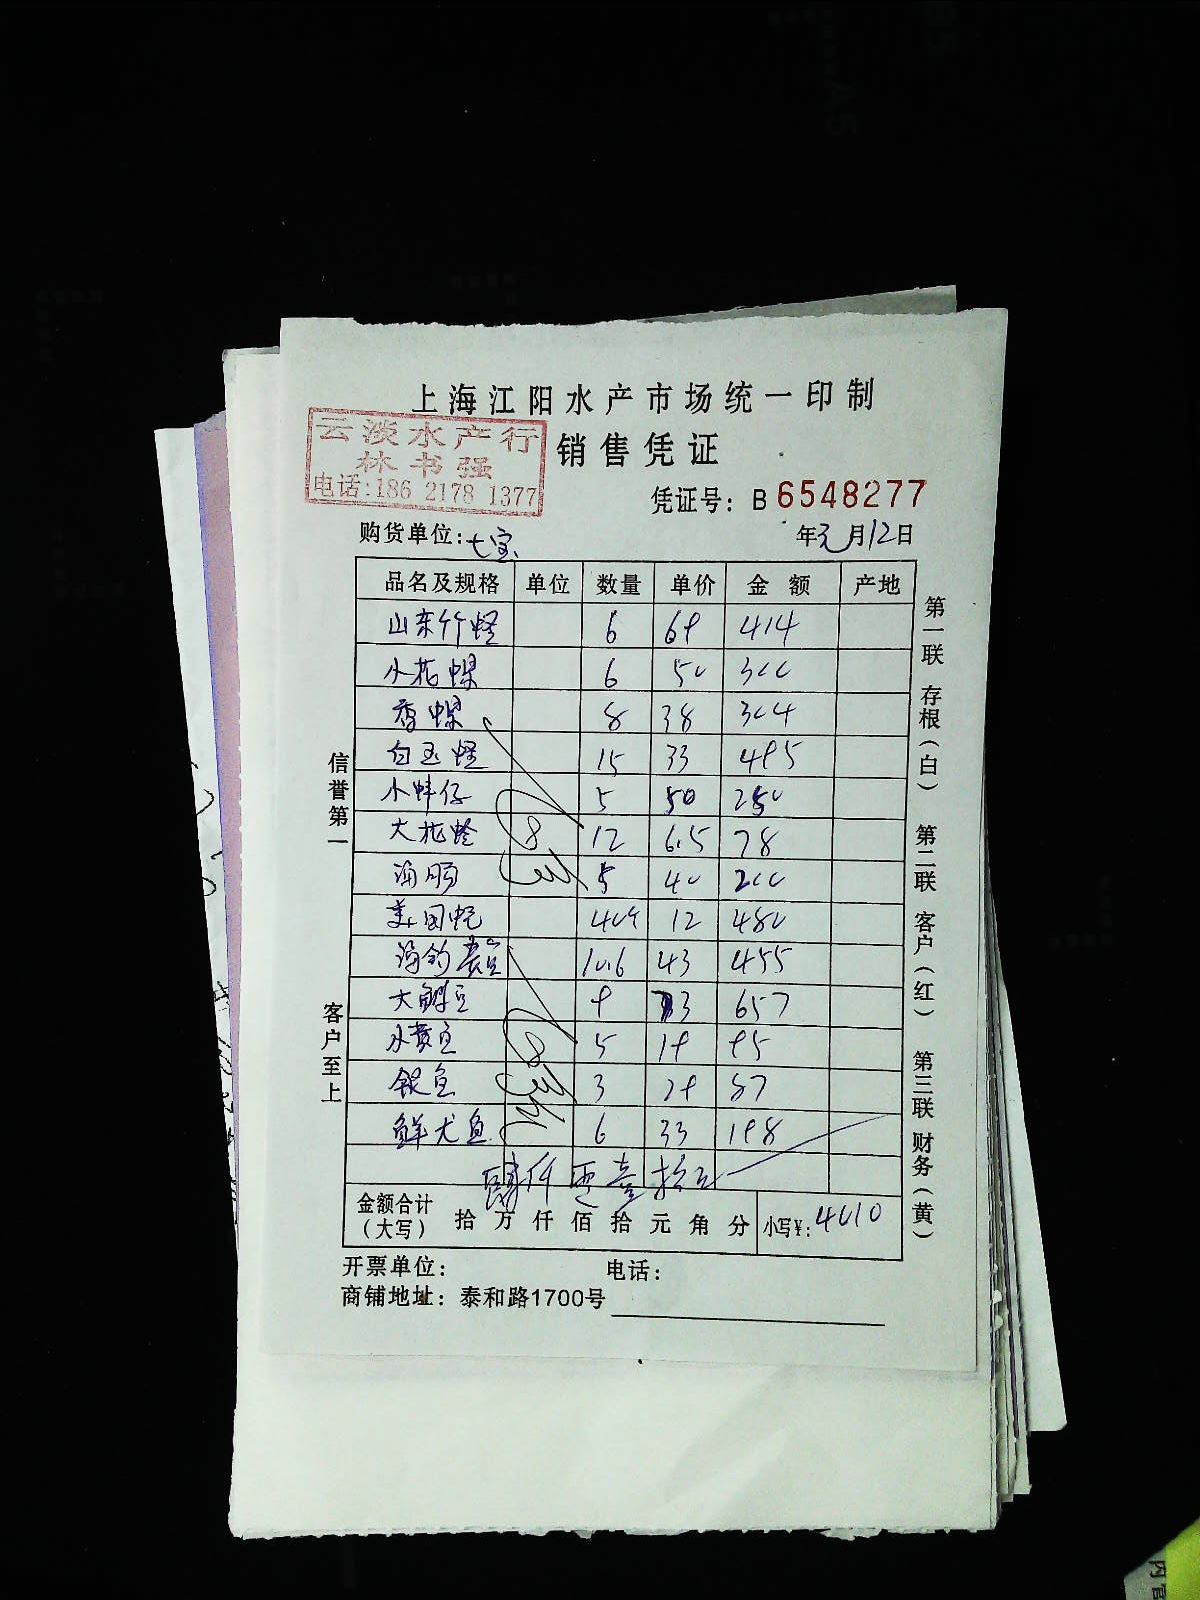 上海江阳水产市场统一印制
云淡水产行
林书强
电话:186 2178 1377
销售凭证
凭证号: B 6548277
购货单位: 七宝 年元月12日
品名及规格 单位 数量 单价 金额 产地
山东竹蛏 6 69 414
小花螺 6 50 300
香螺 8 38 304
白玉蛏 15 33 495
小蚌仔 5 50 250
大花蛤 12 6.5 78
海肠 5 40 200
美国蚝 40个 12 480
海钓 10.6 43 455
大 9 73 657
小黄鱼 5 19 95
银鱼 3 29 87
鲜尤鱼 6 33 198
肆仟零壹拾元
金额合计(大写) 拾万仟佰拾元角分 小写¥: 4010
开票单位: 电话:
商铺地址: 泰和路1700号
信誉第一 客户至上
第一联 存根(白) 第二联 客户(红) 第三联 财务(黄)